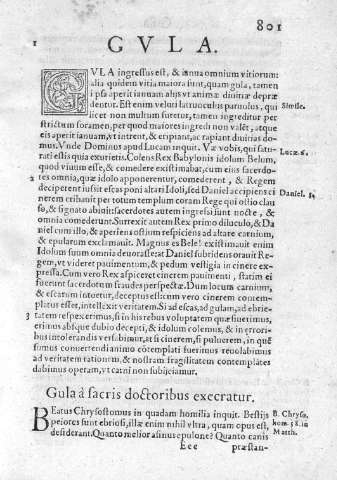 801
GVLA.
1 GVLA ingressus est, & ianua omnium vitiorum:
alia quidem vitia maiora sunt, quam gula, tamen
ipsa aperit ianuam alijs vt animæ diuitiæ deprædentur.
Est enim veluti latrunculus paruulus, qui Simile.
licet non multum furetur, tamen ingreditur per
strictum foramen, per quod maiores ingredi non valẽt, atque
eis aperit ianuam, vt intrent, & eripiant, ac rapiant diuitias domus.
Vnde Dominus apud Lucam inquit. Væ vobis, qui saturati Lucæ 6.
estis quia exurietis. Colens Rex Babylonis idolum Belum,
quod viuum esse, & comedere existimabat, cum eius sacerdotes
2 omnia, quæ idolo apponerentur, comederent, & Regem
deciperent iussit escas poni altari Idoli, sed Daniel accipiens Daniel.
cinerem cribauit per totum templum coram Rege qui ostio clauso,
& signato abiuit: sacerdotes autem ingressi sunt nocte, &
omnia comederunt. Surrexit autem Rex primo diluculo, & Daniel
cum illo, & aperiens ostium respiciens ad altare carnium,
& epularum exclamauit. Magnus es Bele! existimauit enim
Idolum suum omnia deuorasse: at Daniel subridens orauit Regem,
vt videret pauimentum, & pedum vestigia in cinere expressa.
Cum vero Rex aspiceret cinerem pauimenti, statim ei
fuerunt sacerdotum fraudes perspectæ. Dum locum carnium,
& escarum intuetur, deceptus est: cum vero cinerem contemplatus
esset, intellexit veritatem. Si ad escas, ad gulam, ad ebrietatem
3 respexerimus, si in his rebus voluptatem quæsiuerimus,
erimus absque dubio decepti, & idolum colemus, & in erroribus
intolerandis versabimur, at si cinerem, si puluerem, in quẽ
sumus conuertendi animo cõtemplati fuerimus reuolabimus
ad veritatem rationum, & nostram fragilitatem contemplates
dabimus operam, vt catni non subijciamur.
Gula à sacris doctoribus execratur.
BEatus Chrysostomus in quadam homilia inquit. Bestijs B. Chryso.
peiores sunt ebriosi, illæ enim nihil vltra, quam opus est, hom 58. in
desiderant. Quanto melior asinus epulone? Quanto canis Matth.
Eee præstan-